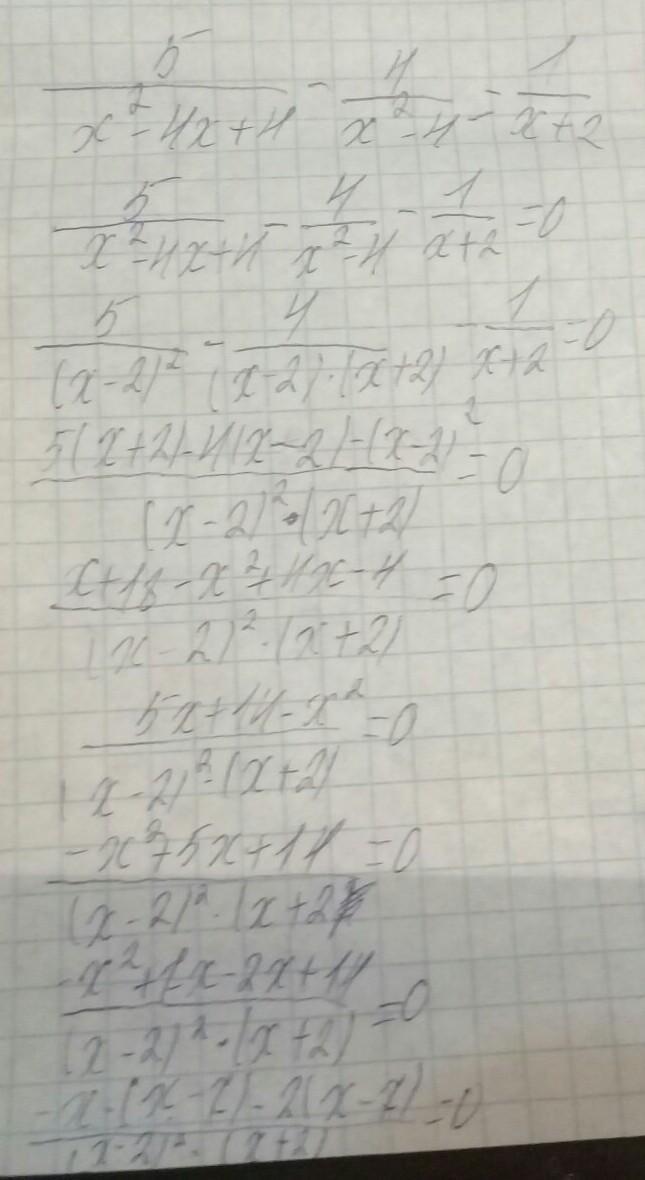 5/(x²-4x+4) - 4/(x²-4) = 1/(x+2)
5/(x²-4x+4) - 4/(x²-4) - 1/(x+2) = 0
5/(x-2)² - 4/((x-2)·(x+2)) - 1/(x+2) = 0
(5(x+2)-4(x-2)-(x-2)²)/((x-2)²·(x+2)) = 0
(x+18-x²+4x-4)/((x-2)²·(x+2)) = 0
(5x+14-x²)/((x-2)²·(x+2)) = 0
(-x²+5x+14)/((x-2)²·(x+2)) = 0
(-x²+7x-2x+14)/((x-2)²·(x+2)) = 0
(-x·(x-7)-2(x-7))/((x-2)²·(x+2)) = 0